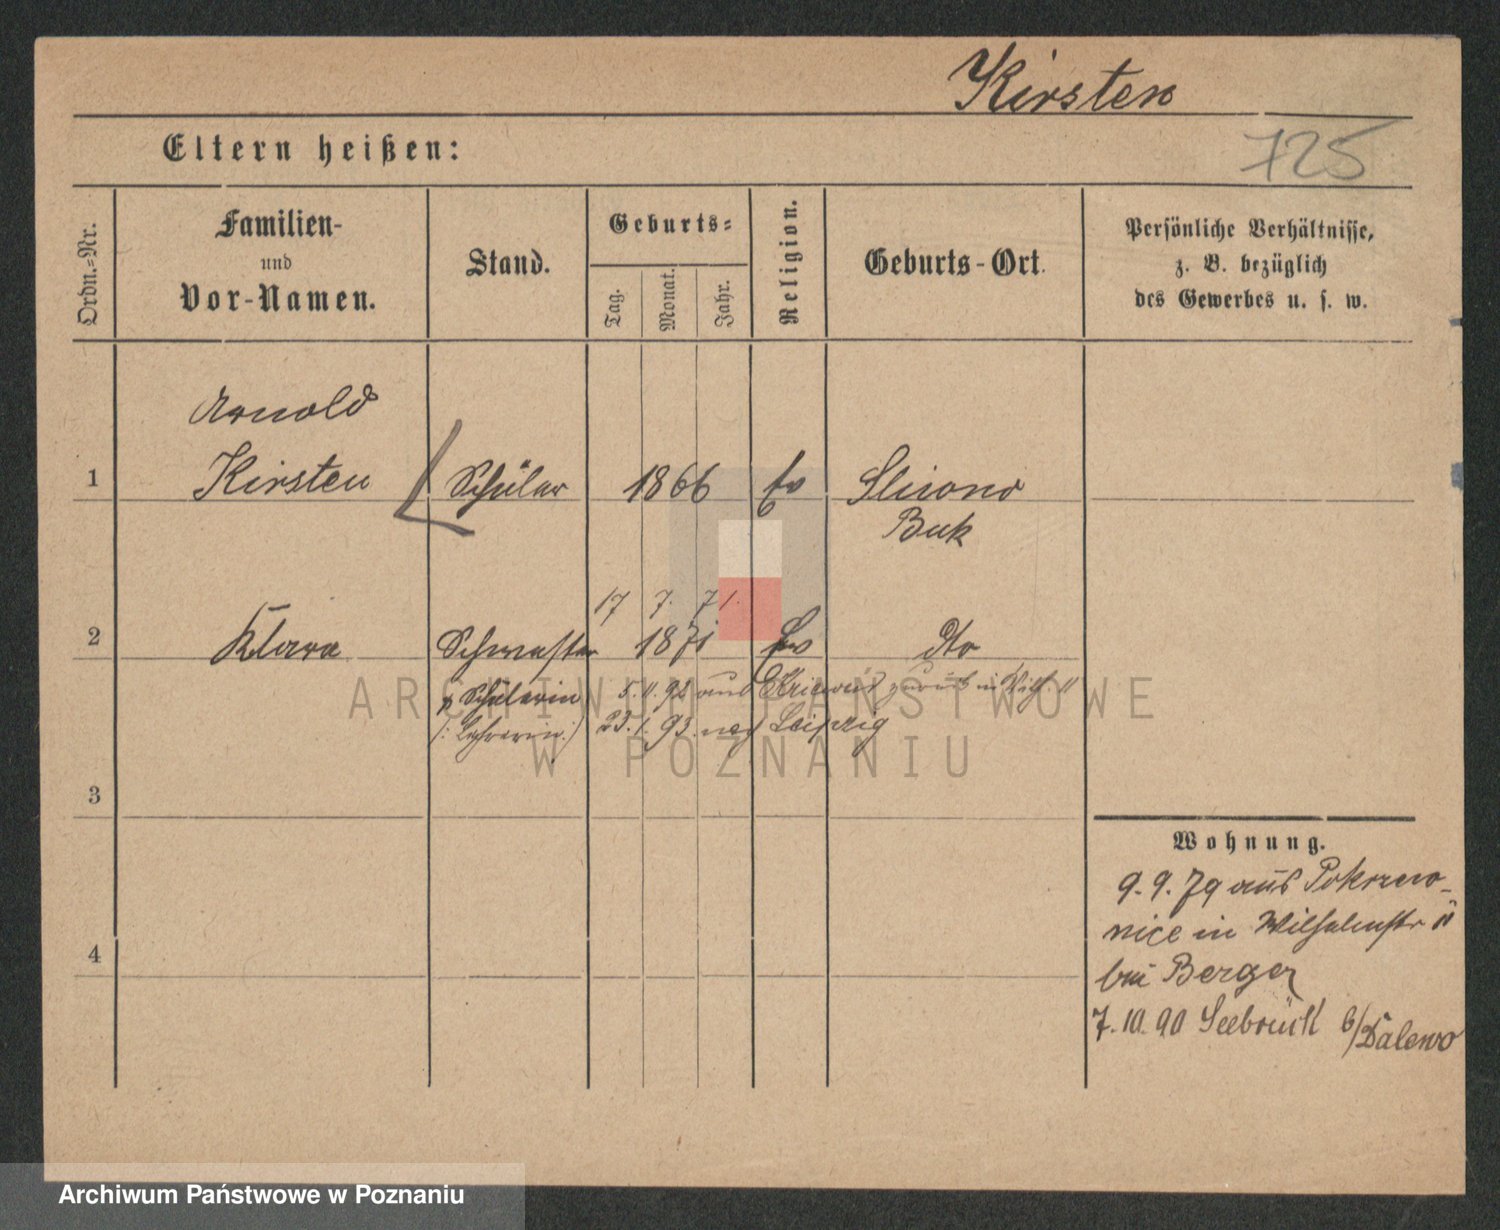 Kirsten
725
Eltern heißen:
Ordn.-Nr.
Familien-
und
Vor-Namen.
Stand.
Geburts-
Tag.
Monat.
Jahr.
Religion.
Geburts-Ort.
Persönliche Verhältnisse,
z. B. bezüglich
des Gewerbes u. s. w.
Arnold
1 Kirsten Schüler 1866 Ev Sliwno
Buk
17 7. 71.
2 Klara Schwester 1871 Ev dto
Schülerin 5. 11. 92 aus zurück in Wilh. 11
(: Lehrerin :) 23. 1. 93. nach Leipzig
3
4
Wohnung.
9. 9. 79 aus Pokrzew-
nice in Wilhelmstr 11
bei Berger
7. 10. 90 Seebrück b/Dalewo
ARCHIWUM PAŃSTWOWE
W POZNANIU
Archiwum Państwowe w Poznaniu